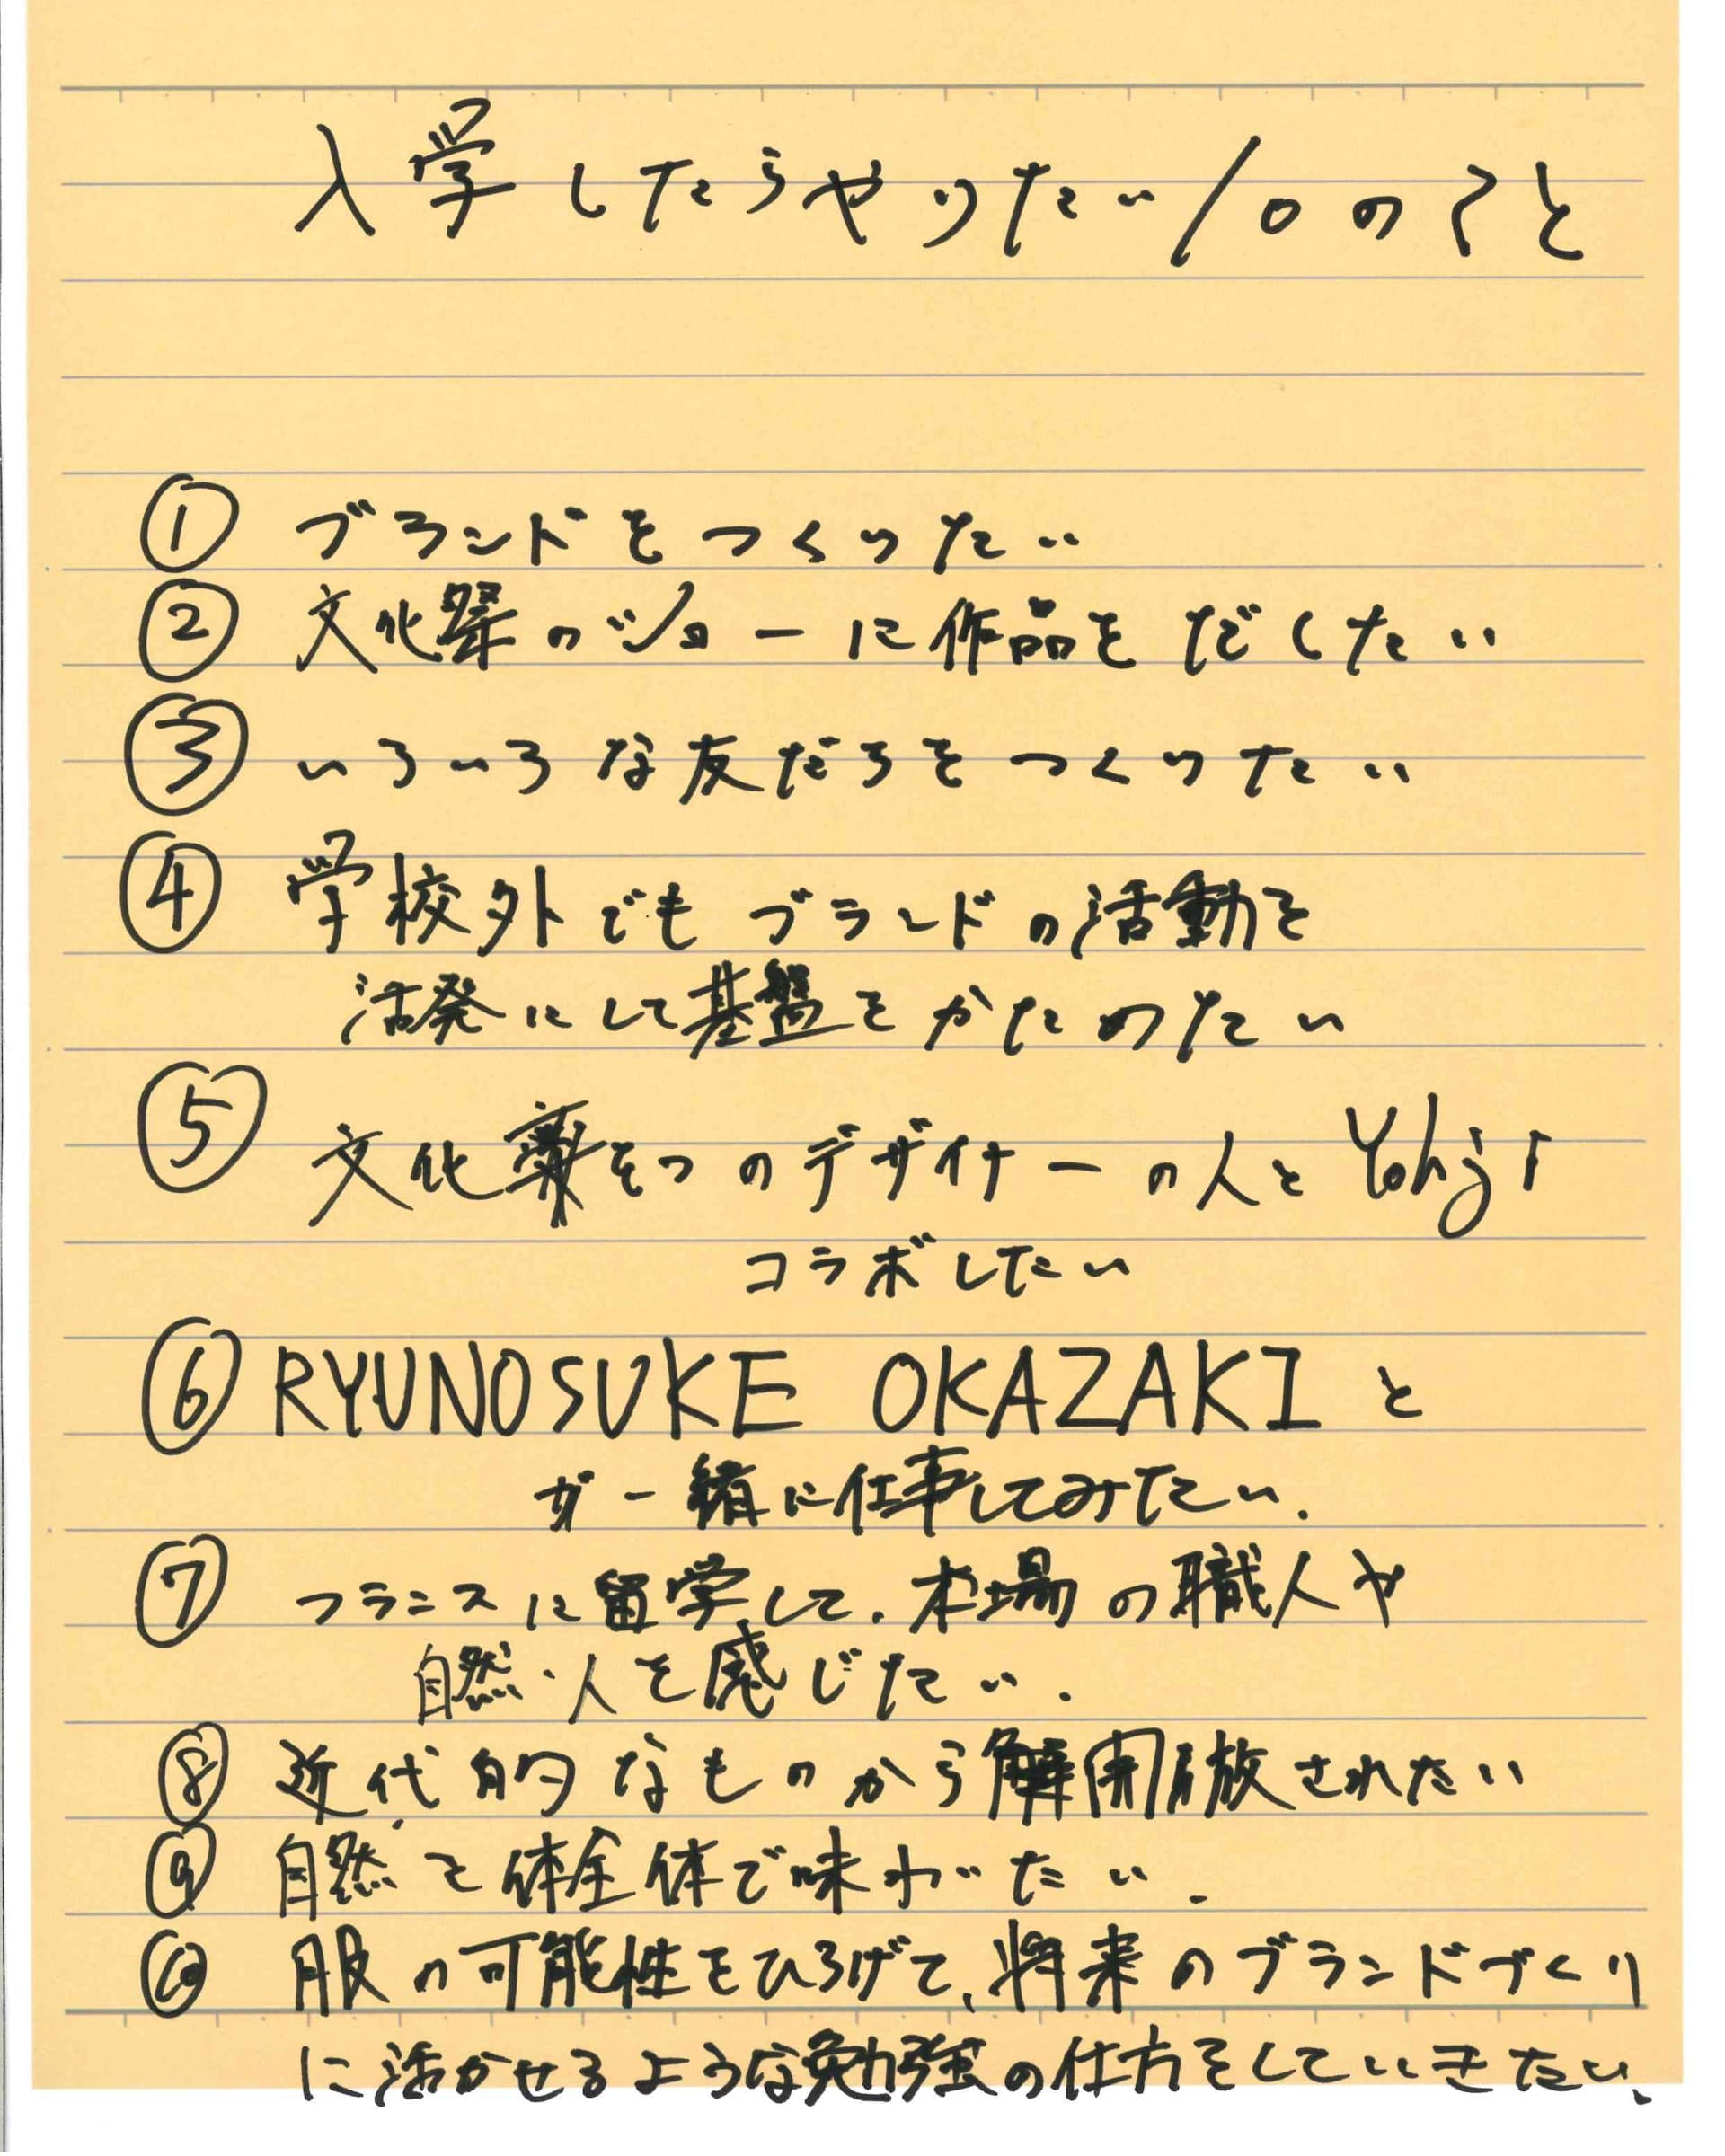 入学したらやりたい10のこと
① ブランドをつくりたい
② 文化祭のショーに作品をだしたい
③ いろいろな友だちをつくりたい
④ 学校外でもブランドの活動を
活発にして基盤をかためたい
⑤ 文化そつのデザイナーの人と Yohji
コラボしたい
⑥ RYUNOSUKE OKAZAKI と
一緒に仕事してみたい.
⑦ フランスに留学して.本場の職人や
自然・人を感じたい.
⑧ 近代的なものから解放されたい
⑨ 自然を体全体で味わいたい.
⑩ 服の可能性をひろげて、将来のブランドづくり
に活かせるような勉強の仕方をしていきたい、